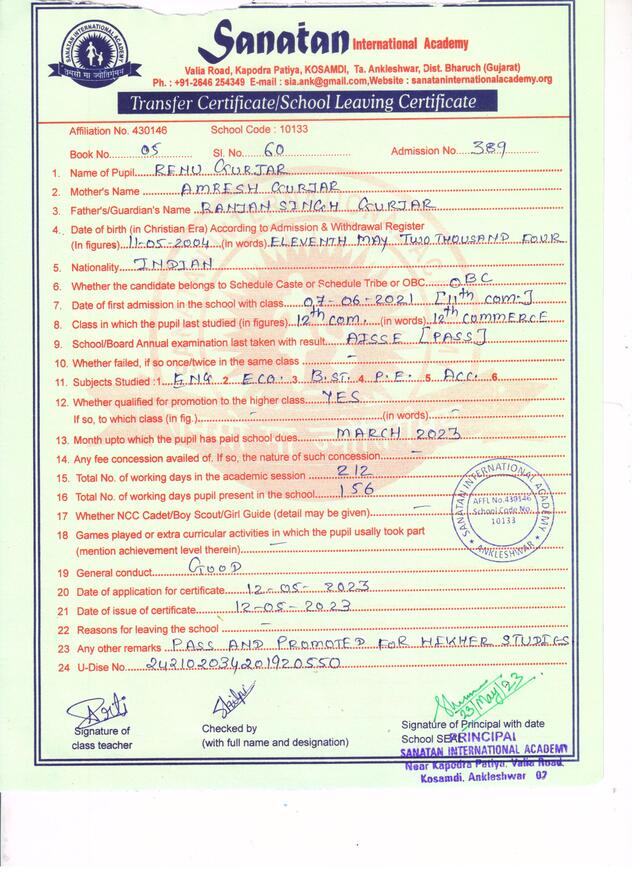 SANATAN INTERNATIONAL ACADEMY
तमसो मा ज्योतिर्गमय
Sanatan International Academy
Valia Road, Kapodra Patiya, KOSAMDI, Ta. Ankleshwar, Dist. Bharuch (Gujarat)
Ph. : +91-2646 254349 E-mail : sia.ank@gmail.com, Website : sanataninternationalacademy.org
Transfer Certificate/School Leaving Certificate
Affiliation No. 430146 School Code : 10133
Book No. 05 Sl. No. 60 Admission No. 389
1. Name of Pupil RENU GURJAR
2. Mother's Name AMRESH GURJAR
3. Father's/Guardian's Name RANJAN SINGH GURJAR
4. Date of birth (in Christian Era) According to Admission & Withdrawal Register
(In figures) 11-05-2004 (in words) ELEVENTH MAY TWO THOUSAND FOUR
5. Nationality INDIAN
6. Whether the candidate belongs to Schedule Caste or Schedule Tribe or OBC OBC
7. Date of first admission in the school with class 07-06-2021 [11th com.]
8. Class in which the pupil last studied (in figures) 12th com. (in words) 12th COMMERCE
9. School/Board Annual examination last taken with result AISSE [PASS]
10. Whether failed, if so once/twice in the same class -
11. Subjects Studied : 1. ENG 2. ECO. 3. B.ST. 4. P.E. 5. ACC. 6.
12. Whether qualified for promotion to the higher class YES
If so, to which class (in fig.) - (in words) -
13. Month upto which the pupil has paid school dues MARCH 2023
14. Any fee concession availed of. If so, the nature of such concession -
15. Total No. of working days in the academic session 212
16 Total No. of working days pupil present in the school 156
17 Whether NCC Cadet/Boy Scout/Girl Guide (detail may be given) -
18 Games played or extra curricular activities in which the pupil usally took part
(mention achievement level therein) -
19 General conduct GOOD
20 Date of application for certificate 12-05-2023
21 Date of issue of certificate 12-05-2023
22 Reasons for leaving the school -
23 Any other remarks PASS AND PROMOTED FOR HIKHER STUDIES
24 U-Dise No. 242102034201920550
SANATAN INTERNATIONAL ACADEMY
AFFL No.430146
School Code No.
10133
ANKLESHWAR
23/May/23
Signature of class teacher
Checked by
(with full name and designation)
Signature of Principal with date
School SEAL
PRINCIPAL
SANATAN INTERNATIONAL ACADEMY
Near Kapodra Patiya, Valia Road,
Kosamdi, Ankleshwar 02